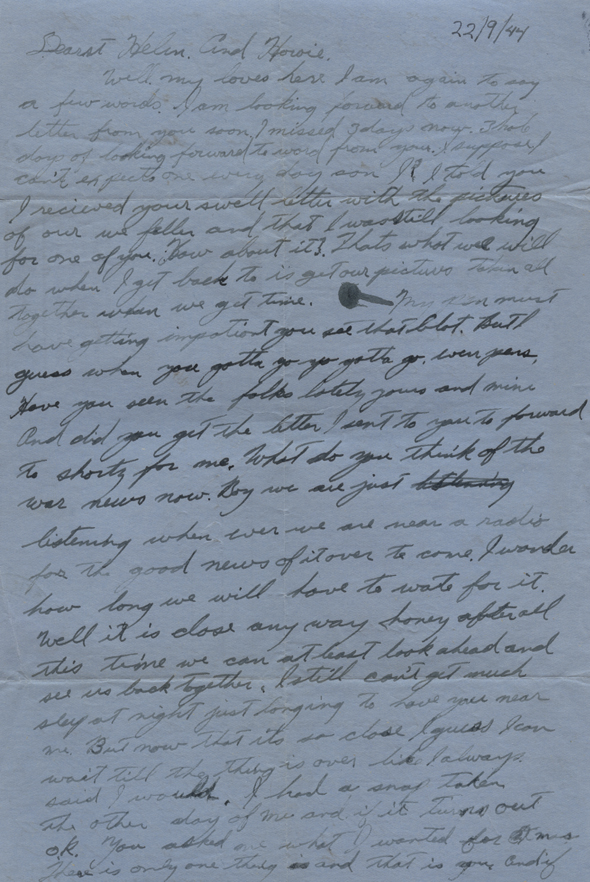 22/9/44
Dearst Helen. And Howie.
Well. my loves here I am again to say
a few words. I am looking forward to another
letter from you soon. I missed 3 days now. 3 hole
days of looking forward to word from you. I suppose I
can't expecte one every day son I? I told you
I recieved your swell letter with the pictures
of our we feller and that I was still looking
for one of you. How about it? Thats what we will
do when I get back to is get our pictures taken all
together when we get time. My pen must
have getting impatient you see that blot. But I
guess when you gotta go yo gotta go. even pens.
Have you seen the folks lately yours and mine
And did you get the letter I sent to you to forward
to shorty for me. What do you think of the
war news now. Boy we are just listening
listening when ever we are near a radio
for the good news of it over to come. I wonder
how long we will have to wate for it.
Well it is close any way honey after all
this time we can at least look ahead and
see us back together. I still can't get much
sleep at night just longing to have you near
me. But now that its so close I guess I can
wait till the thing is over like I always
said I would. I had a snap taken
the other day of me and if it turns out
ok. You asked me what I wanted for Xmas
There is only one thing and that is you and if